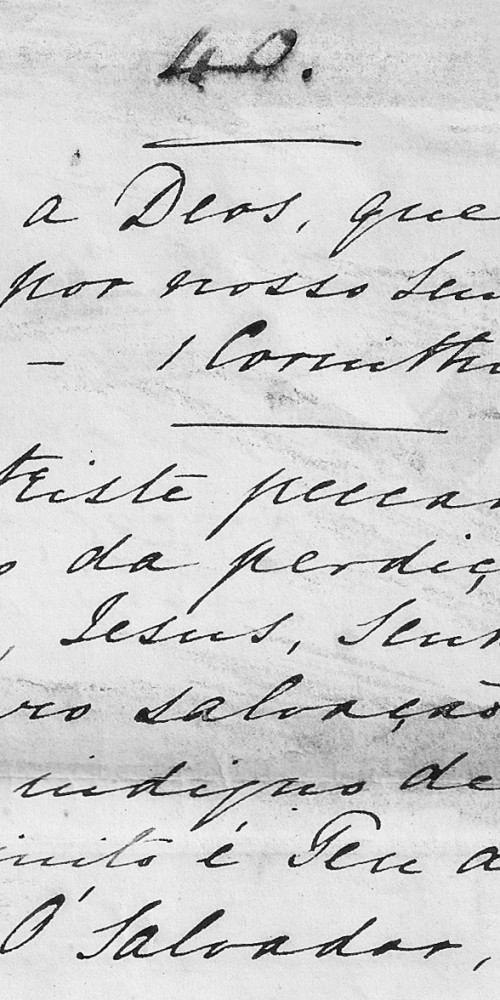 40.
a Deos, que
por nosso Sen
- 1 Corinthi
triste peccar
o da perdiç
, Jesus, Senh
ro salvação
indigno de
inito é Teu a
Ó Salvador,